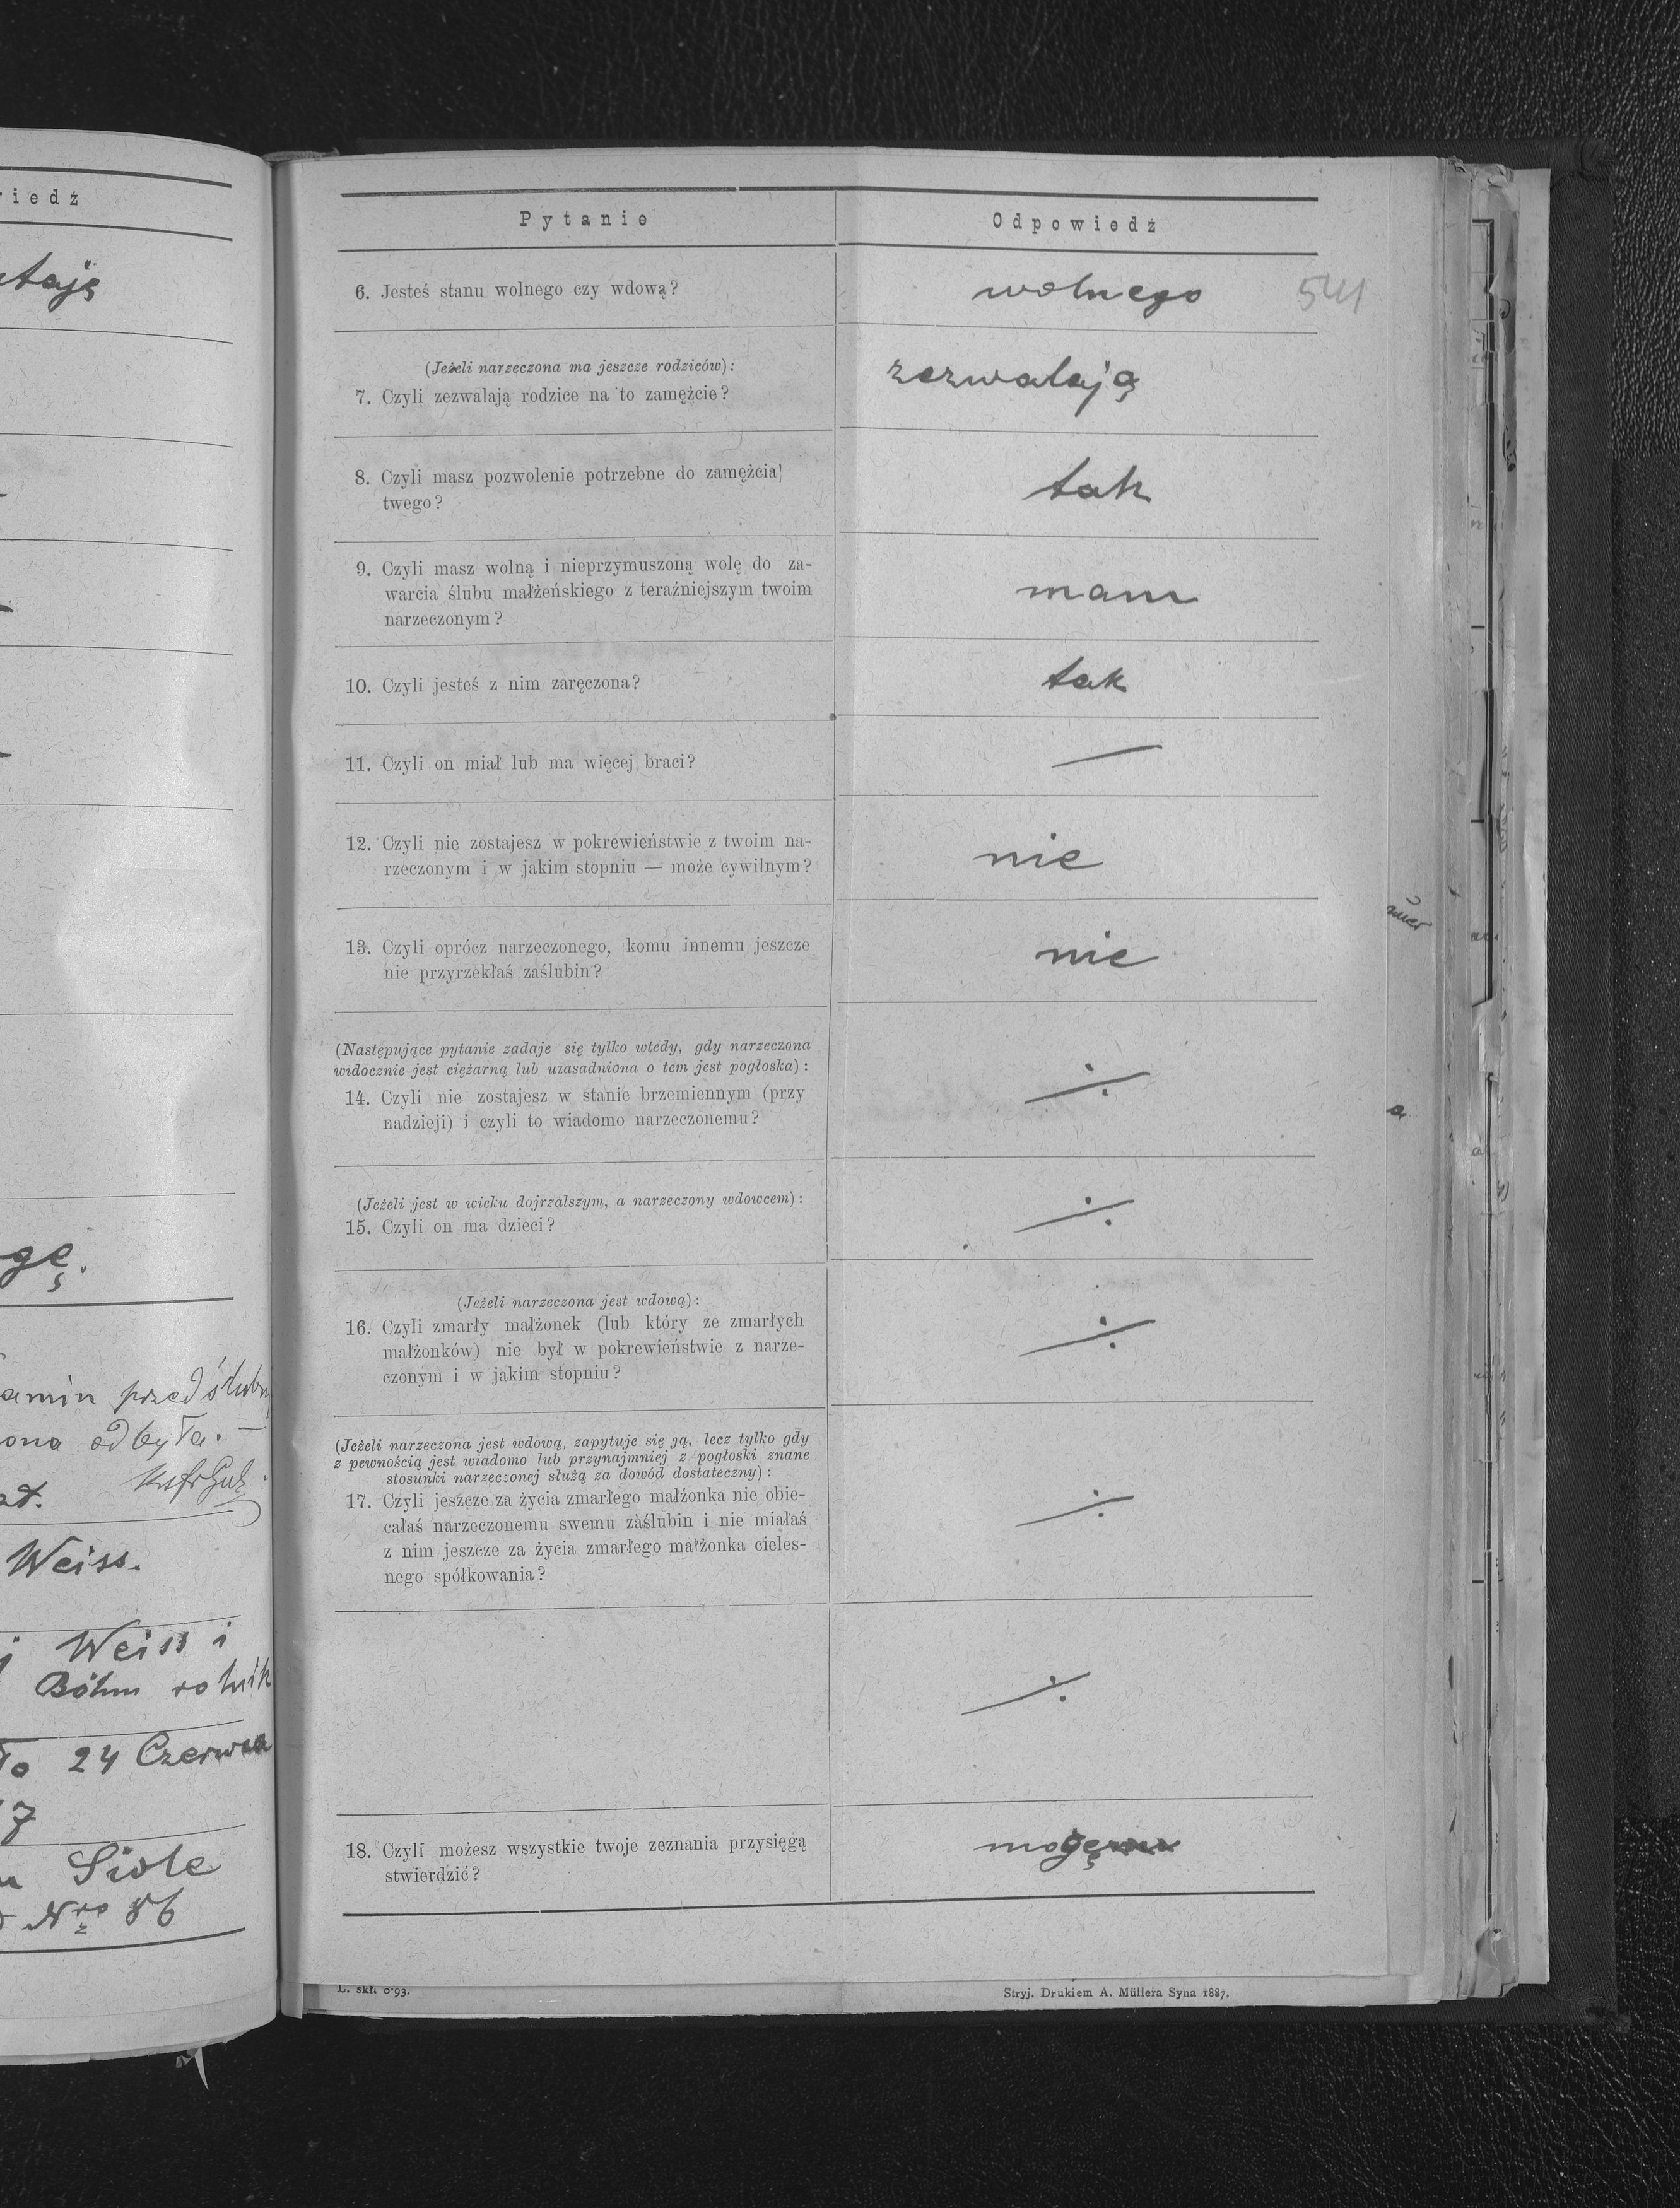 iedź
zamin przedślubn
ona odbyła.
Weiss.
Weiss i
Böhm rolnik
24 Czerwca
7
Siole
Nro 86
Pytanie Odpowiedź
6. Jesteś stanu wolnego czy wdową? wolnego 541
(Jeżeli narzeczona ma jeszcze rodziców):
7. Czyli zezwalają rodzice na to zamężcie? zezwalają
8. Czyli masz pozwolenie potrzebne do zamężcia
twego? tak
9. Czyli masz wolną i nieprzymuszoną wolę do za-
warcia ślubu małżeńskiego z teraźniejszym twoim
narzeczonym? mam
10. Czyli jesteś z nim zaręczona? tak
11. Czyli on miał lub ma więcej braci? —
12. Czyli nie zostajesz w pokrewieństwie z twoim na-
rzeczonym i w jakim stopniu — może cywilnym? nie
13. Czyli oprócz narzeczonego, komu innemu jeszcze
nie przyrzekłaś zaślubin? nie
(Następujące pytanie zadaje się tylko wtedy, gdy narzeczona
widocznie jest ciężarną lub uzasadniona o tem jest pogłoska):
14. Czyli nie zostajesz w stanie brzemiennym (przy
nadzieji) i czyli to wiadomo narzeczonemu? ÷
(Jeżeli jest w wieku dojrzalszym, a narzeczony wdowcem):
15. Czyli on ma dzieci? ÷
(Jeżeli narzeczona jest wdową):
16. Czyli zmarły małżonek (lub który ze zmarłych
małżonków) nie był w pokrewieństwie z narze-
czonym i w jakim stopniu? ÷
(Jeżeli narzeczona jest wdową, zapytuje się ją, lecz tylko gdy
z pewnością jest wiadomo lub przynajmniej z pogłoski znane
stosunki narzeczonej służą za dowód dostateczny):
17. Czyli jeszcze za życia zmarłego małżonka nie obie-
całaś narzeczonemu swemu zaślubin i nie miałaś
z nim jeszcze za życia zmarłego małżonka cieles-
nego spółkowania? ÷
÷
18. Czyli możesz wszystkie twoje zeznania przysięgą
stwierdzić? mogę
L. skł. 6·93. Stryj. Drukiem A. Müllera Syna 1887.